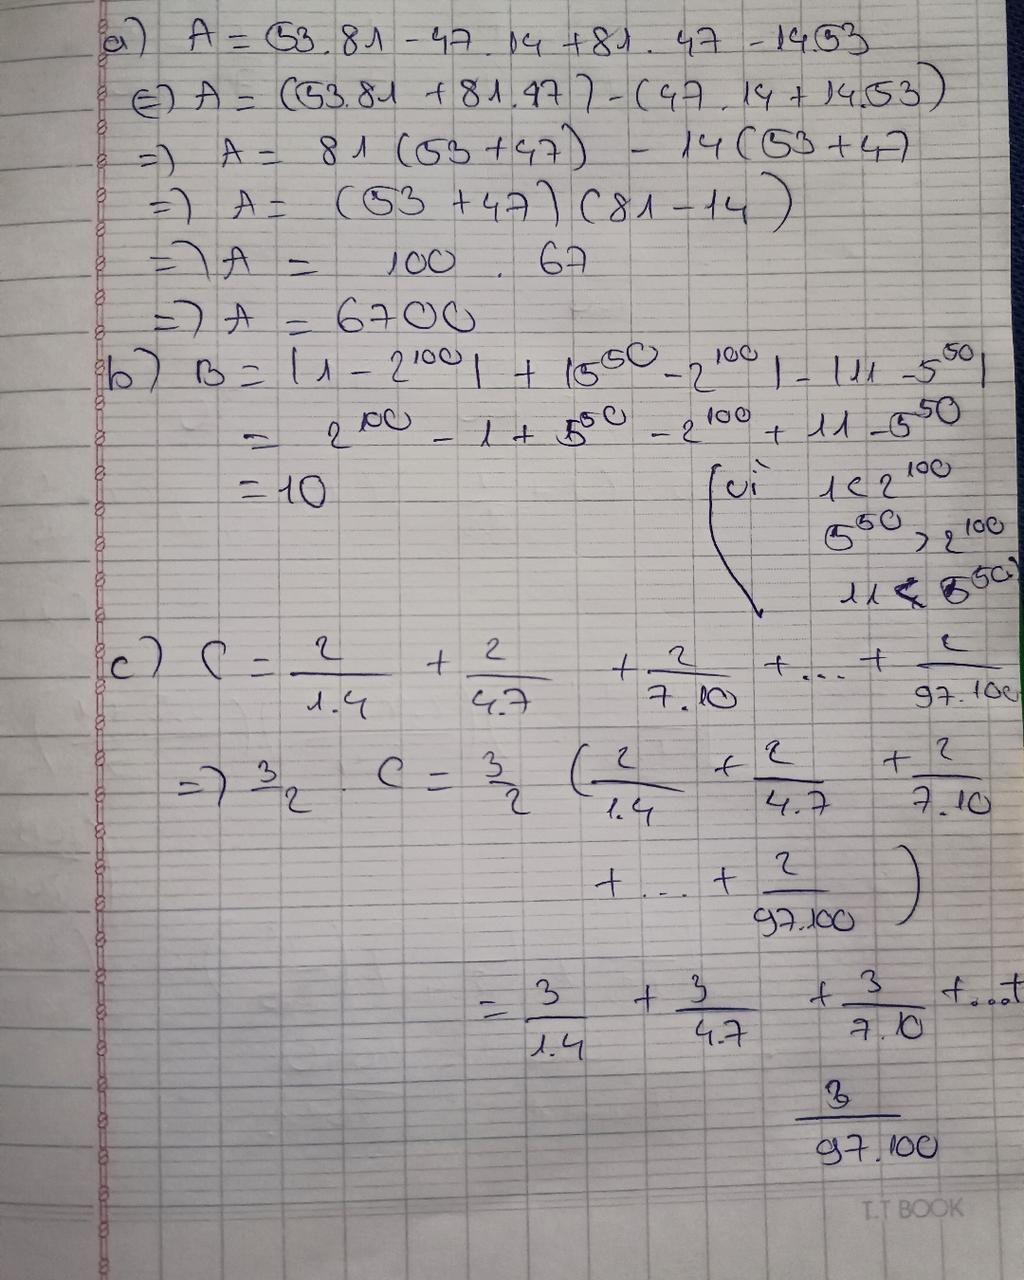 a) A = 53.81 - 47.14 + 81.47 - 14.53
⇔) A = (53.81 + 81.47) - (47.14 + 14.53)
=) A = 81(53+47) - 14(53+47
=) A = (53+47)(81-14)
=) A = 100 . 67
=) A = 6700
b) B = |1 - 2^100| + |5^50 - 2^100| - |11 - 5^50|
= 2^100 - 1 + 5^50 - 2^100 + 11 - 5^50
= 10 (vì 1 < 2^100
5^50 > 2^100
11 < 5^50)
c) C = 2/1.4 + 2/4.7 + 2/7.10 + ... + 2/97.100
=) 3/2 . C = 3/2 (2/1.4 + 2/4.7 + 2/7.10
+ ... + 2/97.100)
= 3/1.4 + 3/4.7 + 3/7.10 + ... +
3/97.100
T.T BOOK